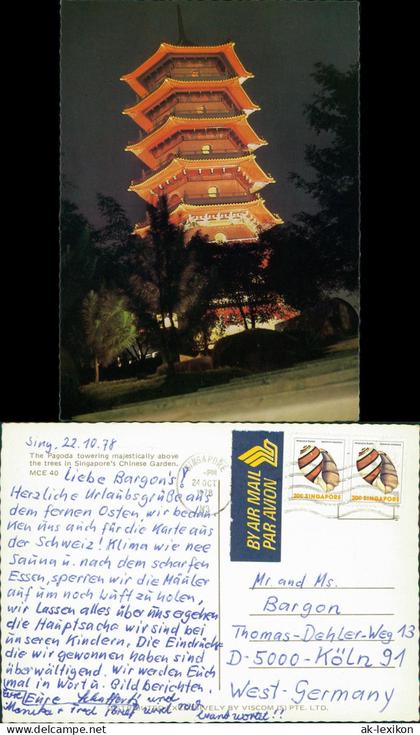 Sing, 22.10.78
The Pagoda towering majestically above
the trees in Singapore's Chinese Garden.
MCE 40
Liebe Bargon's!
Herzliche Urlaubsgrüße aus
dem fernen Osten, wir bedan-
ken uns auch für die Karte aus
der Schweiz! Klima wie nee
Sauna u. nach dem scharfen
Essen, sperren wir die Mäuler
auf um noch Luft zu holen,
wir lassen alles über uns ergehen
die Hauptsache wir sind bei
unseren Kindern. Die Eindrücke
die wir gewonnen haben sind
überwältigend. Wir werden Euch
mal in Wort u. Bild berichten,
Eure
und
Monika + Fred und
SINGAPORE
24 OCT
1978
BY AIR MAIL
PAR AVION
20c SINGAPORE
20c SINGAPORE
Mr. and Ms.
Bargon
Thomas-Dehler-Weg 13
D-5000-Köln 91
West-Germany
EXCLUSIVELY BY VISCOM (S) PTE. LTD.
delcampe.net
© ak-lexikon